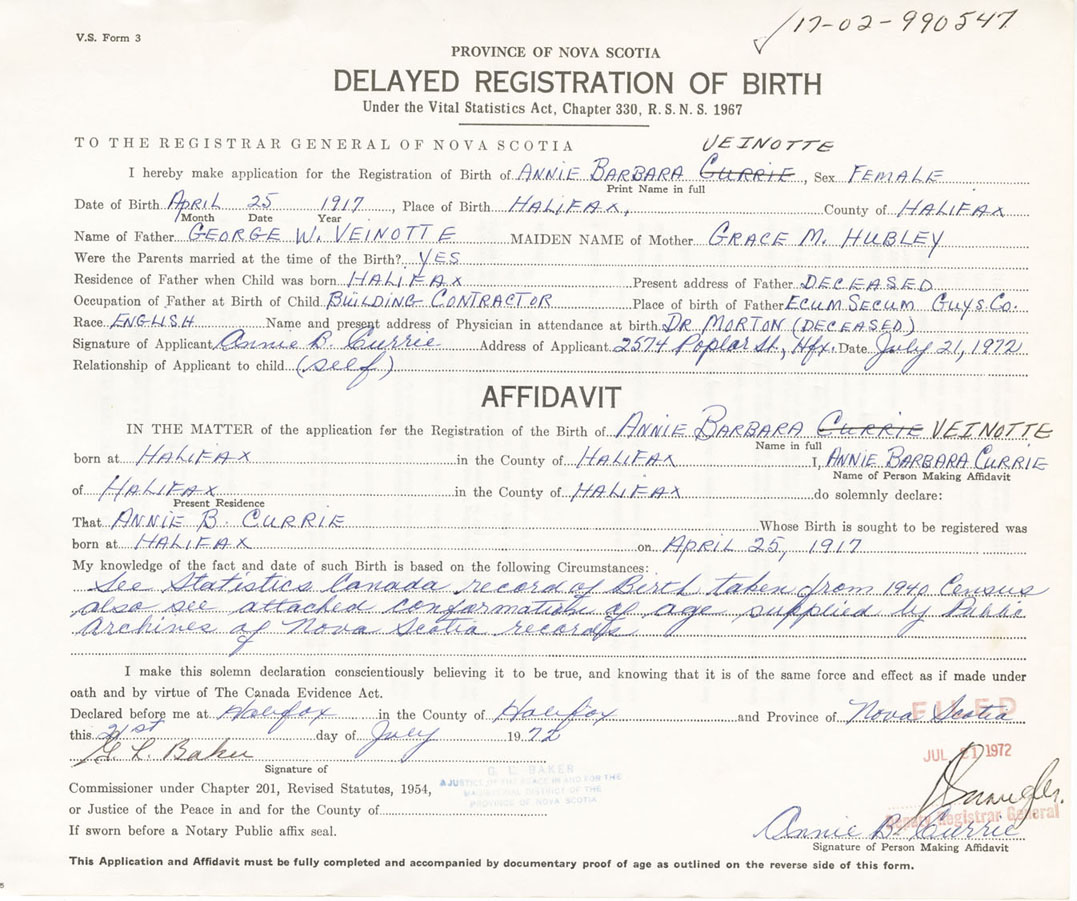 17-02-990547
V.S. Form 3
PROVINCE OF NOVA SCOTIA
DELAYED REGISTRATION OF BIRTH
Under the Vital Statistics Act, Chapter 330, R.S.N.S. 1967
TO THE REGISTRAR GENERAL OF NOVA SCOTIA VEINOTTE
I hereby make application for the Registration of Birth of ANNIE BARBARA CURRIE, Sex FEMALE
Print Name in full
Date of Birth APRIL 25 1917, Place of Birth HALIFAX, County of HALIFAX
Month Date Year
Name of Father GEORGE W. VEINOTTE MAIDEN NAME of Mother GRACE M. HUBLEY
Were the Parents married at the time of the Birth? YES
Residence of Father when Child was born HALIFAX Present address of Father DECEASED
Occupation of Father at Birth of Child BUILDING CONTRACTOR Place of birth of Father ECUM SECUM GUYS. CO.
Race ENGLISH Name and present address of Physician in attendance at birth DR MORTON (DECEASED)
Signature of Applicant Annie B. Currie Address of Applicant 2574 Poplar St, Hfx. Date July 21, 1972
Relationship of Applicant to child (self)
AFFIDAVIT
IN THE MATTER of the application for the Registration of the Birth of ANNIE BARBARA CURRIE VEINOTTE
Name in full
born at HALIFAX in the County of HALIFAX I, ANNIE BARBARA CURRIE
Name of Person Making Affidavit
of HALIFAX in the County of HALIFAX do solemnly declare:
Present Residence
That ANNIE B. CURRIE Whose Birth is sought to be registered was
born at HALIFAX on APRIL 25, 1917
My knowledge of the fact and date of such Birth is based on the following Circumstances:
See Statistics Canada record of Birth taken from 1940 Census
also see attached conformation of age supplied by Public
Archives of Nova Scotia records
I make this solemn declaration conscientiously believing it to be true, and knowing that it is of the same force and effect as if made under
oath and by virtue of The Canada Evidence Act.
Declared before me at Halifax in the County of Halifax and Province of Nova Scotia
FILED
this 21st day of July 1972
JUL 21 1972
G. L. Baker
Signature of
G. L. BAKER
A JUSTICE OF THE PEACE IN AND FOR THE
MAGISTERIAL DISTRICT OF THE
PROVINCE OF NOVA SCOTIA
Commissioner under Chapter 201, Revised Statutes, 1954,
or Justice of the Peace in and for the County of
Deputy Registrar General
If sworn before a Notary Public affix seal.
Annie B. Currie
Signature of Person Making Affidavit
This Application and Affidavit must be fully completed and accompanied by documentary proof of age as outlined on the reverse side of this form.
5